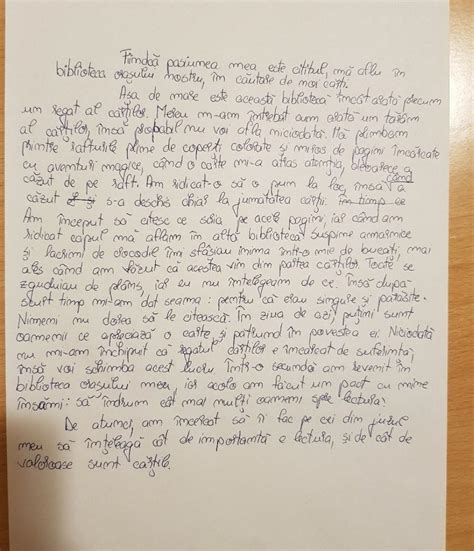 Fiindcă pasiunea mea este cititul, mă aflu în
biblioteca orașului nostru, în căutare de noi cărți.
Așa de mare este această bibliotecă încât arată precum
un regat al cărților. Mereu m-am întrebat cum arată un tărâm
al cărților, însă probabil nu voi afla niciodată. Mă plimbam
printre rafturile pline de coperți colorate și miros de pagini încărcate
cu aventuri magice, când o carte mi-a atras atenția, deoarece a
căzut de pe raft. Am ridicat-o să o pun la loc, însă când a
căzut s-a deschis chiar la jumătatea cărții. În timp ce
Am început să citesc ce scria pe acele pagini, iar când am
ridicat capul mă aflam în altă bibliotecă. Suspine amarnice
și lacrimi de crocodil îmi sfâșiau inima într-o mie de bucăți, mai
ales când am văzut că acestea vin din partea cărților. Toate se
zguduiau de plâns, iar eu nu înțelegeam de ce. Însă după
scurt timp mi-am dat seama: pentru că erau singure și părăsite.
Nimeni nu dorea să le citească. În ziua de azi, puțini sunt
oamenii ce apreciază o carte, și pătrund în povestea ei. Niciodată
nu mi-am închipuit că regatul cărților e încărcat de suferință,
însă voi schimba acest lucru. Într-o secundă am revenit în
biblioteca orașului meu, iar acolo am făcut un pact cu mine
însămi: să îndrum cât mai mulți oameni spre lectură.
De atunci, am încercat să îi fac pe cei din jurul
meu să înțeleagă cât de importantă e lectura, și de cât de
valoroase sunt cărțile.